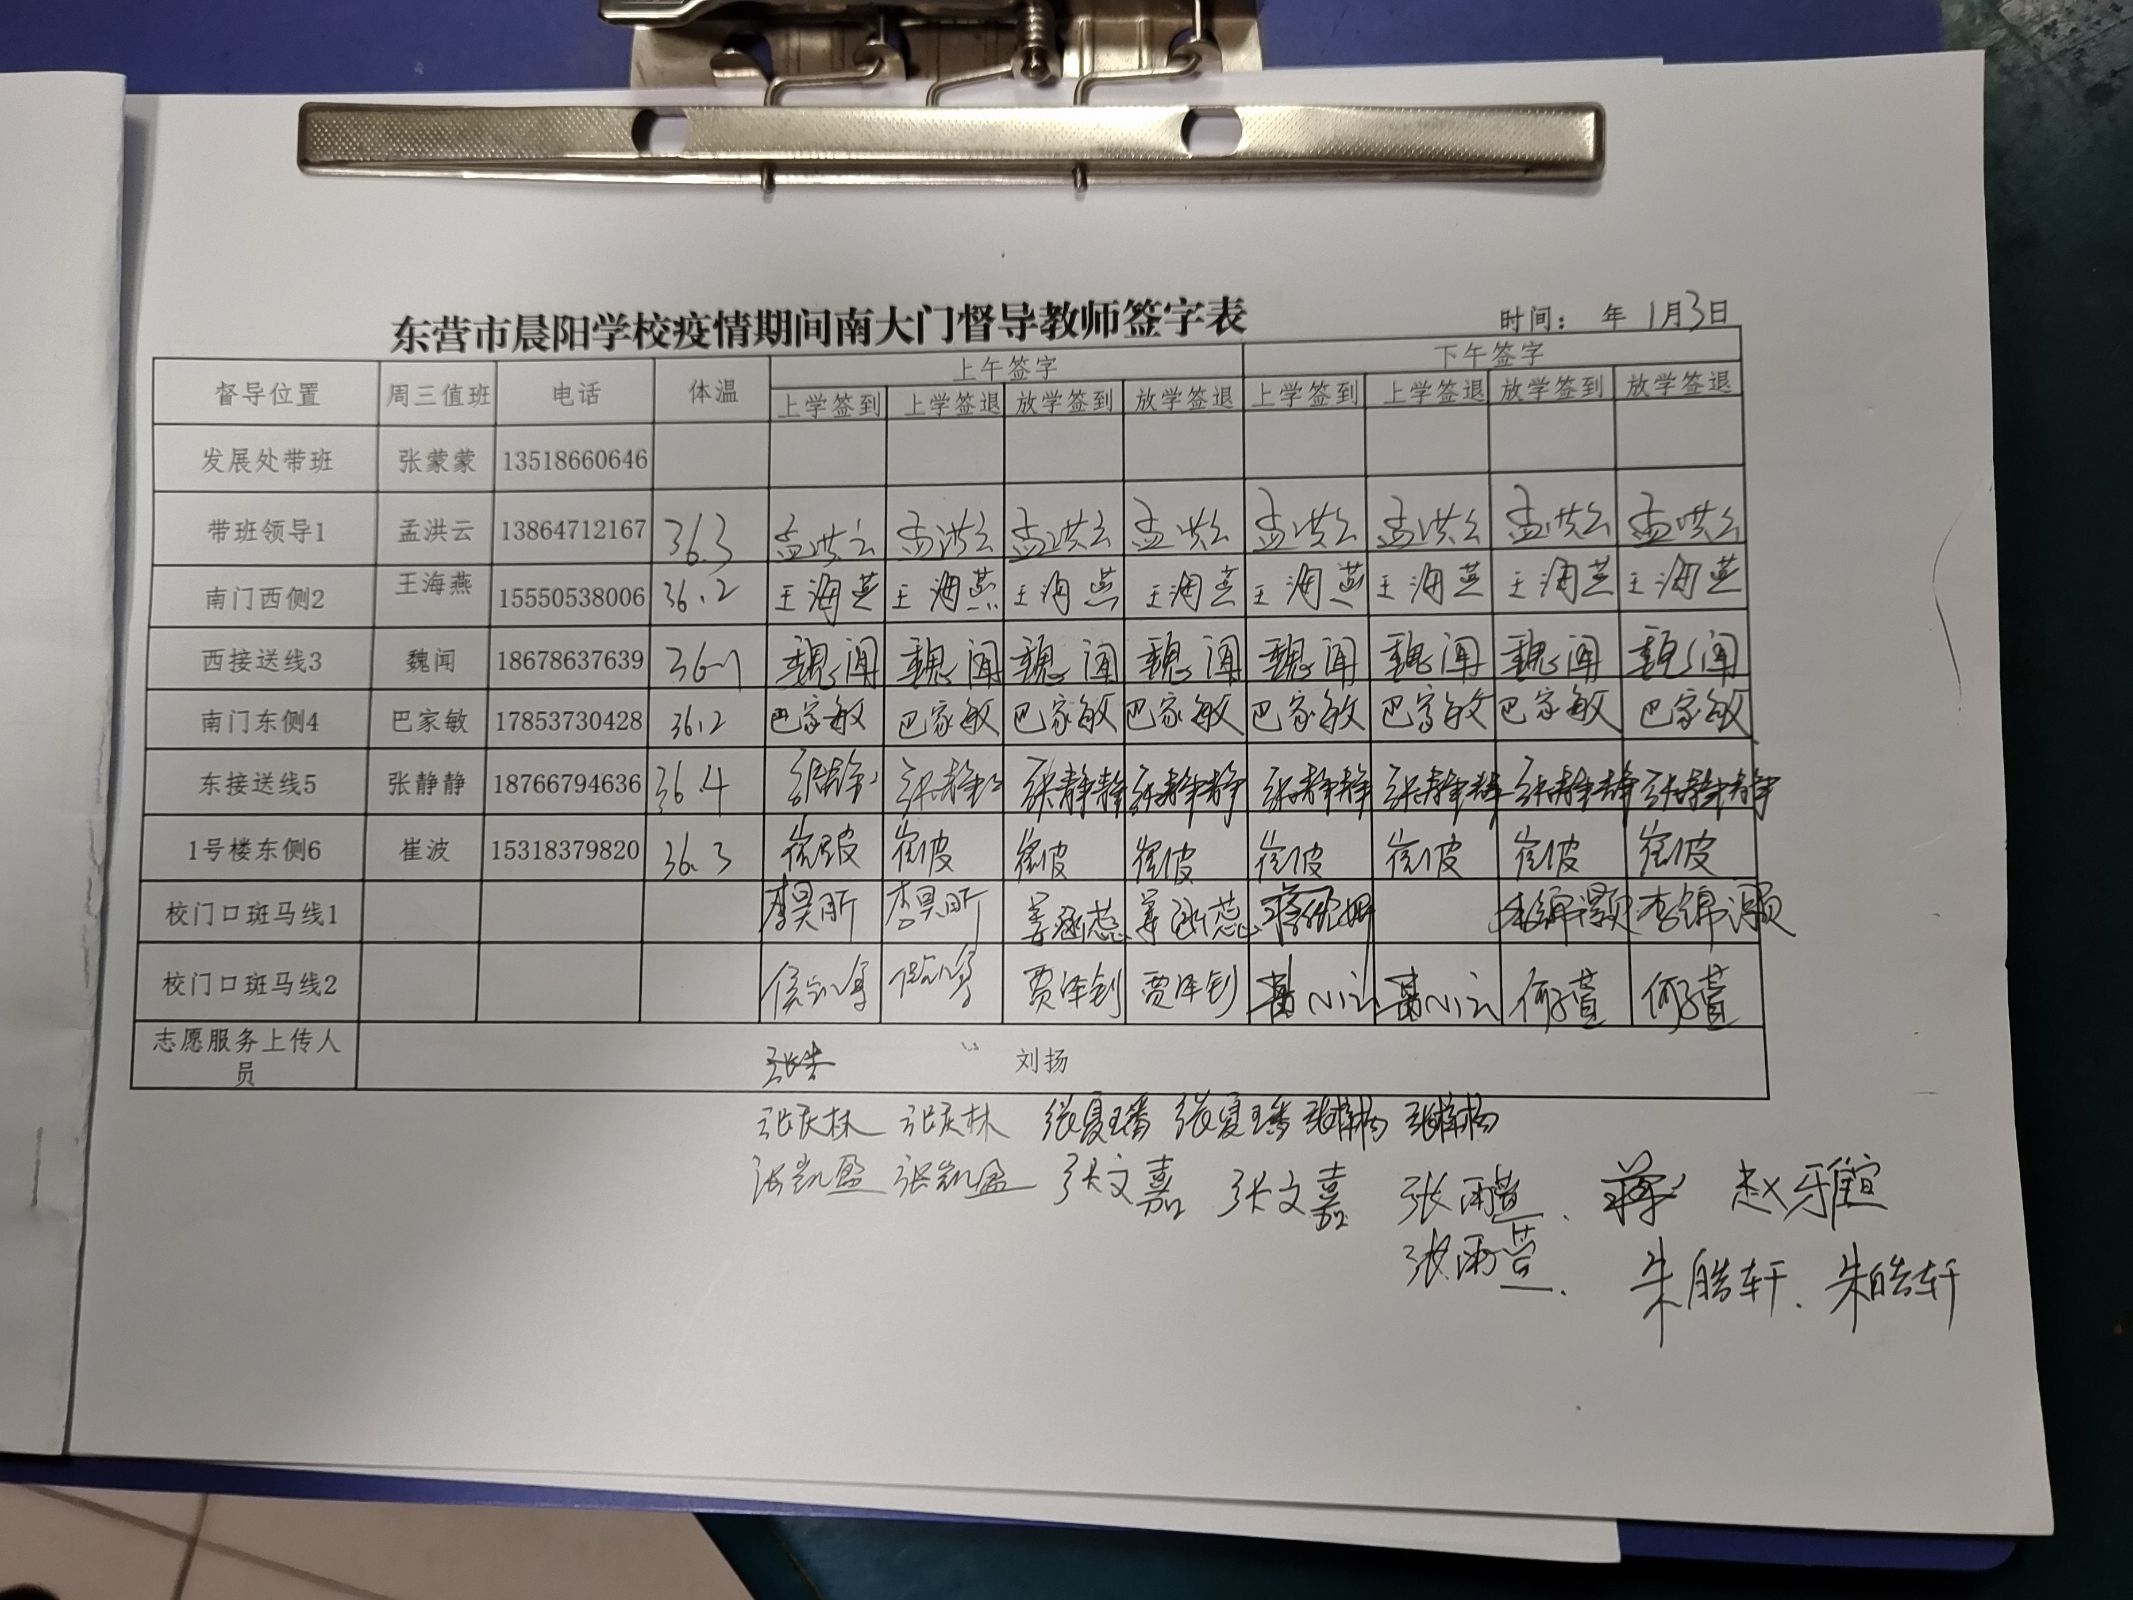 东营市晨阳学校疫情期间南大门督导教师签字表
时间： 年 1月3日
督导位置 周三值班 电话 体温 上午签字 下午签字
上学签到 上学签退 放学签到 放学签退 上学签到 上学签退 放学签到 放学签退
发展处带班 张蒙蒙 13518660646
带班领导1 孟洪云 13864712167 36.3 孟洪云 孟洪云 孟洪云 孟洪云 孟洪云 孟洪云 孟洪云 孟洪云
南门西侧2 王海燕 15550538006 36.2 王海燕 王海燕 王海燕 王海燕 王海燕 王海燕 王海燕 王海燕
西接送线3 魏闻 18678637639 魏闻 魏闻 魏闻 魏闻 魏闻 魏闻 魏闻 魏闻
南门东侧4 巴家敏 17853730428 36.2 巴家敏 巴家敏 巴家敏 巴家敏 巴家敏 巴家敏 巴家敏 巴家敏
东接送线5 张静静 18766794636 36.4 张静静 张静静 张静静 张静静 张静静 张静静 张静静 张静静
1号楼东侧6 崔波 15318379820 36.3 崔波 崔波 崔波 崔波 崔波 崔波 崔波 崔波
校门口斑马线1 李昊昕 李昊昕 姜涵蕊 姜涵蕊 李锦灏 李锦灏
校门口斑马线2 贾泽钊 贾泽钊 葛心 葛心 何子萱 何子萱
志愿服务上传人员 刘扬
张庆林 张庆林 张夏璠 张夏璠
张凯盈 张凯盈 张文嘉 张文嘉 张雨萱 赵雅萱
张雨萱 朱皓轩 朱皓轩